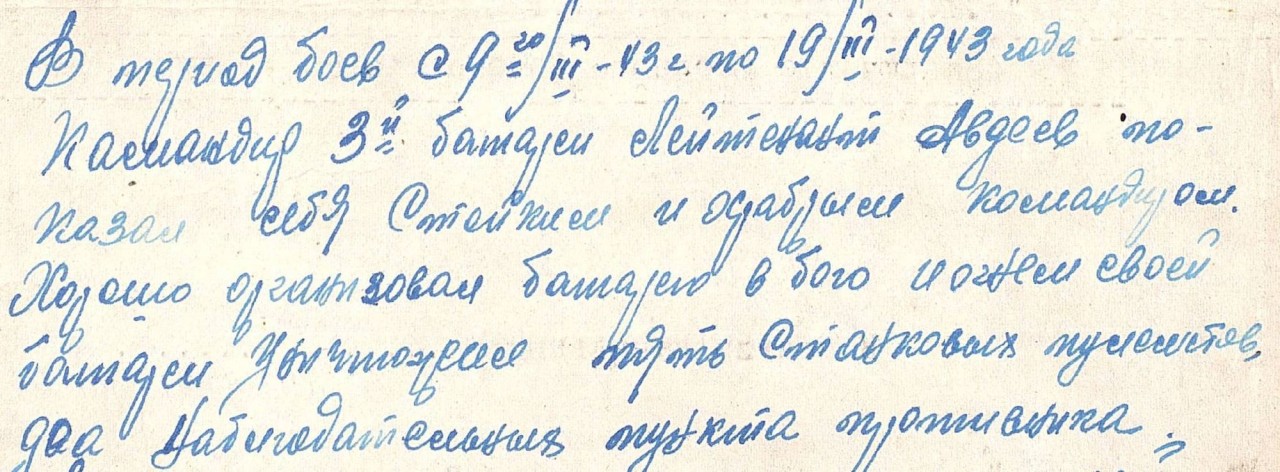 В период боев с 9го/III-43г. по 19/III-1943 года
Командир 3й батареи Лейтенант Авдеев по-
казал себя Стойким и храбрым командиром.
Хорошо организовал батарею в бою и огнем своей
батареи Уничтожено пять Станковых пулеметов,
два Наблюдательных пункта противника.